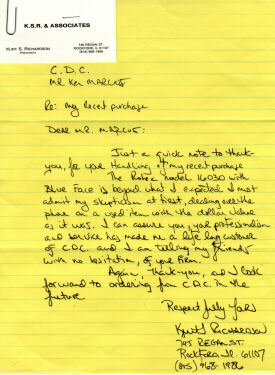 K.S.R. & ASSOCIATES
KURT S. RICHARDSON
PRESIDENT
745 REGAN ST.
ROCKFORD, IL 61107
C.D.C.
MR Ken MARCUS
Re: my recent purchase
Dear MR. MARCUS:
Just a quick note to thank-
you, for your Handling of my recent purchase
The Rolex model 16030 with
Blue Face is beyond what I expected. I must
admit my skepticism at first, dealing over the
phone on a used item with the dollar value
as it was. I can assure you, your professionalism
and service has made me a life long customer
of C.D.C. and I am telling my friends
with no hesitation, of your Firm.
Again, Thank-you, and I look
forward to ordering from C.D.C. in the
future
Respectfully Yours
Kurt S RICHARDSON
745 REGAN ST.
Rockford, Il. 61107
(815) 968-1986